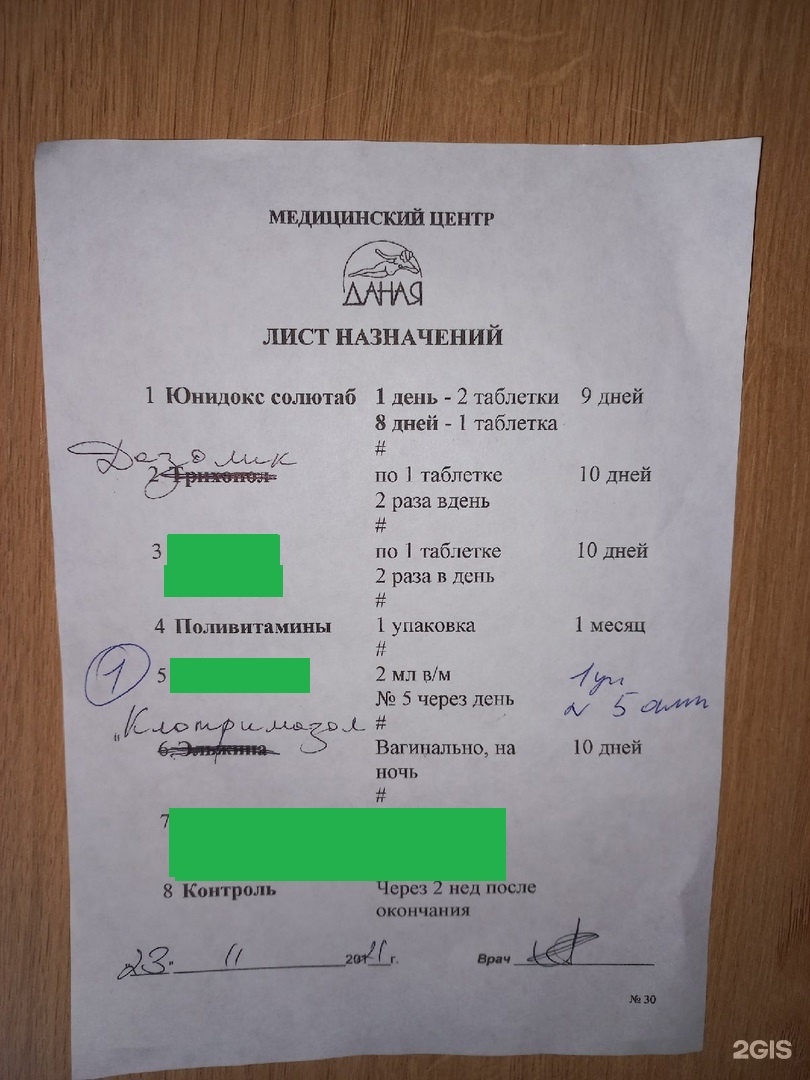 МЕДИЦИНСКИЙ ЦЕНТР
ДАНАЯ
ЛИСТ НАЗНАЧЕНИЙ
1 Юнидокс солютаб 1 день - 2 таблетки 9 дней
8 дней - 1 таблетка
#
Дазолик
2 Трихопол по 1 таблетке 10 дней
2 раза вдень
#
3 по 1 таблетке 10 дней
2 раза в день
#
4 Поливитамины 1 упаковка 1 месяц
#
1 5 2 мл в/м 1уп
№ 5 через день 5 амп
"Клотримазол #
6. Эльжина Вагинально, на 10 дней
ночь
#
7
8 Контроль Через 2 нед после
окончания
23. 11 2021 г. Врач
№ 30
2GIS